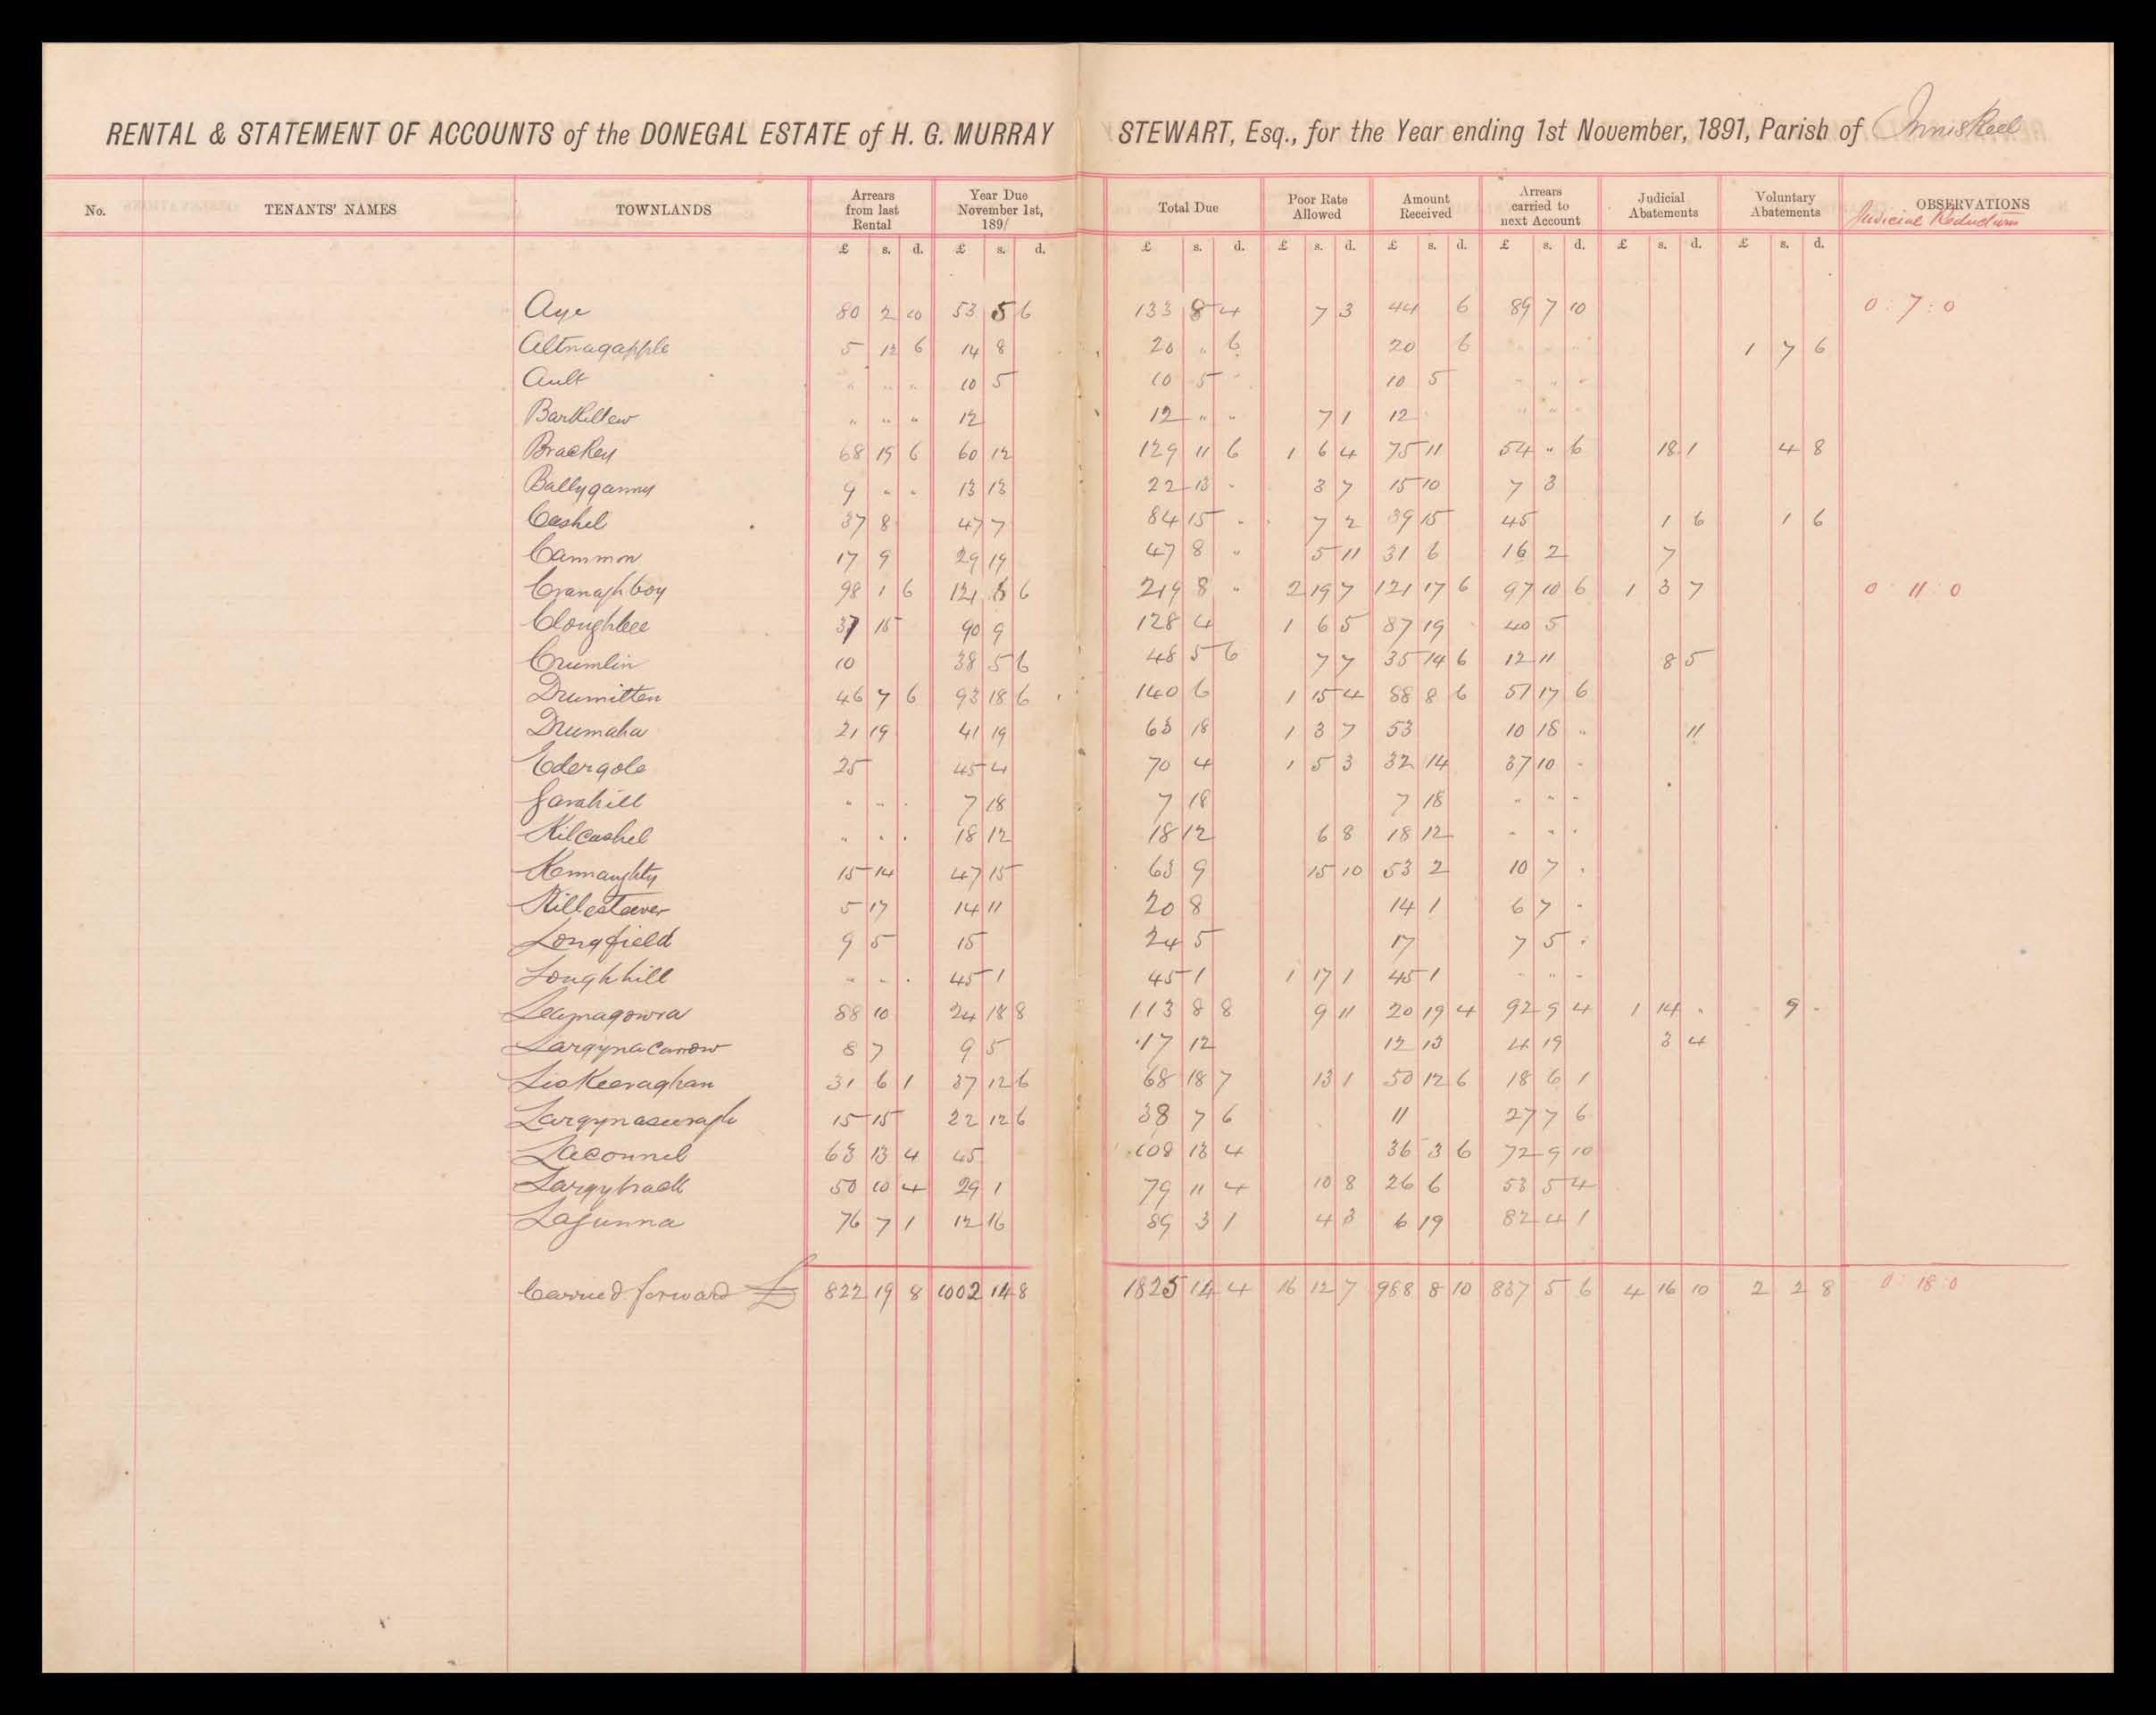 RENTAL & STATEMENT OF ACCOUNTS of the DONEGAL ESTATE of H. G. MURRAY STEWART, Esq., for the Year ending 1st November, 1891, Parish of Inniskeel
No. TENANTS' NAMES TOWNLANDS Arrears from last Rental Year Due November 1st, 1891 Total Due Poor Rate Allowed Amount Received Arrears carried to next Account Judicial Abatements Voluntary Abatements OBSERVATIONS
Judicial Reductions
£ s. d. £ s. d. £ s. d. £ s. d. £ s. d. £ s. d. £ s. d. £ s. d.
Aye 80 2 10 53 5 6 133 8 4 7 3 44 6 89 7 10 0 : 7 : 0
Altnagapple 5 12 6 14 8 20 " 6 20 6 " " " 1 7 6
Ault " " " 10 5 10 5 " 10 5 " " "
Barkillew " " " 12 12 " " 7 1 12 " " "
Brackey 68 19 6 60 12 129 11 6 1 6 4 75 11 54 " 6 18 1 4 8
Ballyganny 9 " " 13 13 22 13 " 3 7 15 10 7 3
Cashel 37 8 47 7 84 15 " 7 2 39 15 45 1 6 1 6
Cammon 17 9 29 19 47 8 " 5 11 31 6 16 2 7
Cranaghboy 98 1 6 121 6 6 219 8 " 2 19 7 121 17 6 97 10 6 1 3 7 0 : 11 : 0
Cloughlee 37 15 90 9 128 4 1 6 5 87 19 40 5
Crumlin 10 38 5 6 48 5 6 7 7 35 14 6 12 11 8 5
Drumitten 46 7 6 93 18 6 140 6 1 15 4 88 8 6 51 17 6
Drumaha 21 19 41 19 63 18 1 3 7 53 10 18 " 11
Edergole 25 45 4 70 4 1 5 3 32 14 37 10 "
Garahill " " " 7 18 7 18 7 18 " " "
Kilcashel " " " 18 12 18 12 6 8 18 12 " " "
Kennaughty 15 14 47 15 63 9 15 10 53 2 10 7 "
Killasteever 5 17 14 11 20 8 14 1 6 7 "
Longfield 9 5 15 24 5 17 7 5 "
Loughhill " " " 45 1 45 1 1 17 1 45 1 " " "
Leamagowra 88 10 24 18 8 113 8 8 9 11 20 19 4 92 9 4 1 14 " 9 "
Largynacarrow 8 7 9 5 17 12 12 13 4 19 3 4
Liskeeraghan 31 6 1 37 12 6 68 18 7 13 1 50 12 6 18 6 1
Largynaseuragh 15 15 22 12 6 38 7 6 11 27 7 6
Laconnel 63 13 4 45 108 13 4 36 3 6 72 9 10
Largybrack 50 10 4 29 1 79 11 4 10 8 26 6 53 5 4
Lagunna 76 7 1 12 16 89 3 1 4 3 6 19 82 4 1
Carried forward £ 822 19 8 1002 14 8 1825 14 4 16 12 7 988 8 10 837 5 6 4 16 10 2 2 8 0 : 18 : 0